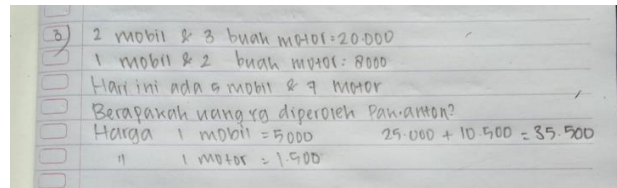 3) 2 mobil & 3 buah motor = 20.000
1 mobil & 2 buah motor : 8000
Hari ini ada 5 mobil & 7 motor
Berapakah uang yg diperoleh Pak.anton?
Harga 1 mobil = 5000 25.000 + 10.500 = 35.500
" 1 motor = 1.500